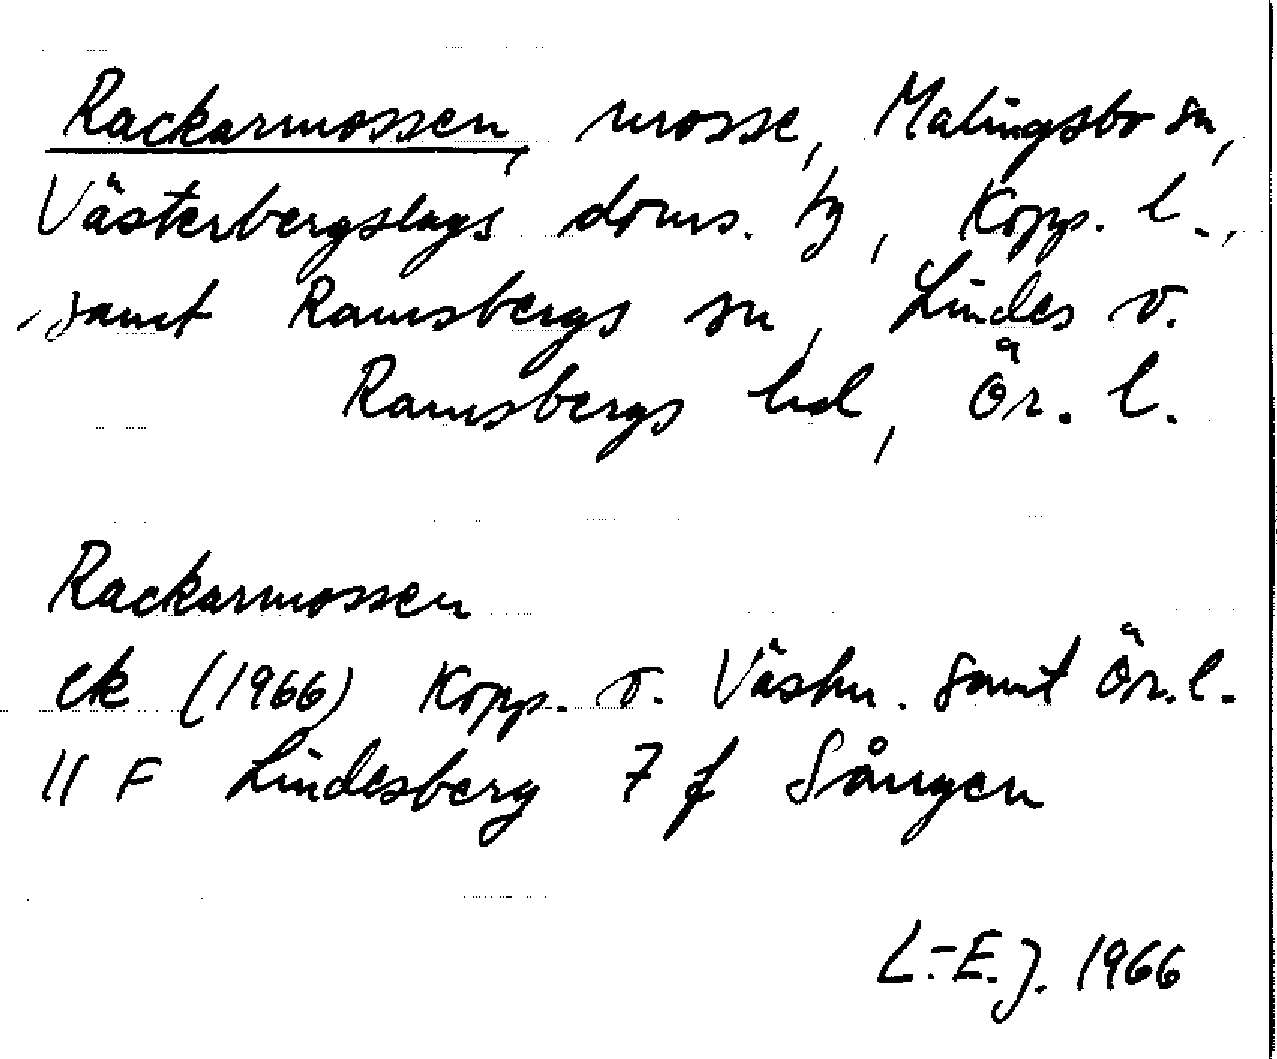 Rackarmossen, mosse, Malingsbo sn,
Västerbergslags doms. tg, Kopp. l.,
samt Ramsbergs sn, Lindes o.
Ramsbergs hd, Ör. l.
Rackarmossen
ek (1966) Kopp. o. Västm. samt Ör. l.
11 F Lindesberg 7 f Sången
L.-E. J. 1966